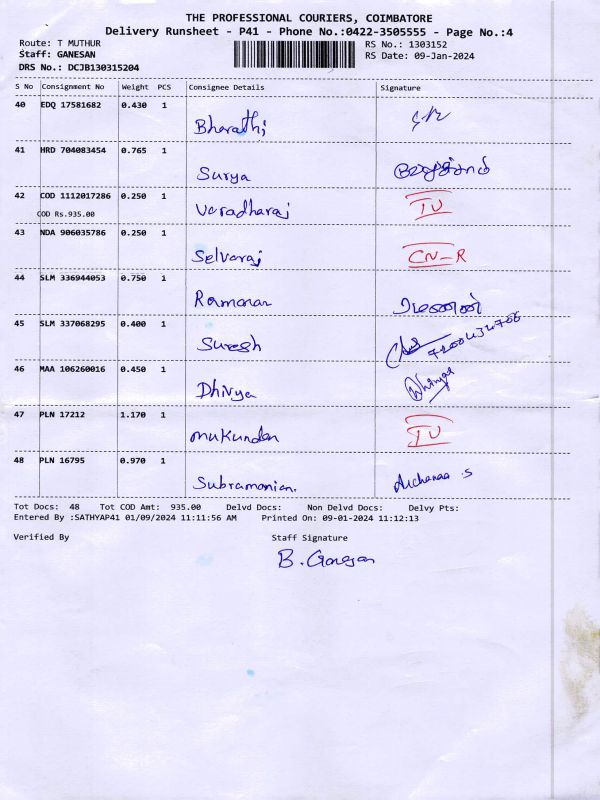 THE PROFESSIONAL COURIERS, COIMBATORE
Delivery Runsheet - P41 - Phone No.:0422-3505555 - Page No.:4
Route: T MUTHUR RS No.: 1303152
Staff: GANESAN RS Date: 09-Jan-2024
DRS No.: DCJB130315204
S No Consignment No Weight PCS Consignee Details Signature
40 EDQ 17581682 0.430 1
Bharathi
41 HRD 704083454 0.765 1
Surya
42 COD 1112017286 0.250 1
COD Rs.935.00 Varadharaj IU
43 NDA 906035786 0.250 1
Selvaraj CN-R
44 SLM 336944053 0.750 1
Ramanan ரமணன்
45 SLM 337068295 0.400 1
Suresh
46 MAA 106260016 0.450 1
Dhivya Dhivya
47 PLN 17212 1.170 1
Mukundan IU
48 PLN 16795 0.970 1
Subramanian. Archanaa .S
Tot Docs: 48 Tot COD Amt: 935.00 Delvd Docs: Non Delvd Docs: Delvy Pts:
Entered By :SATHYAP41 01/09/2024 11:11:56 AM Printed On: 09-01-2024 11:12:13
Verified By Staff Signature
B. Ganesan